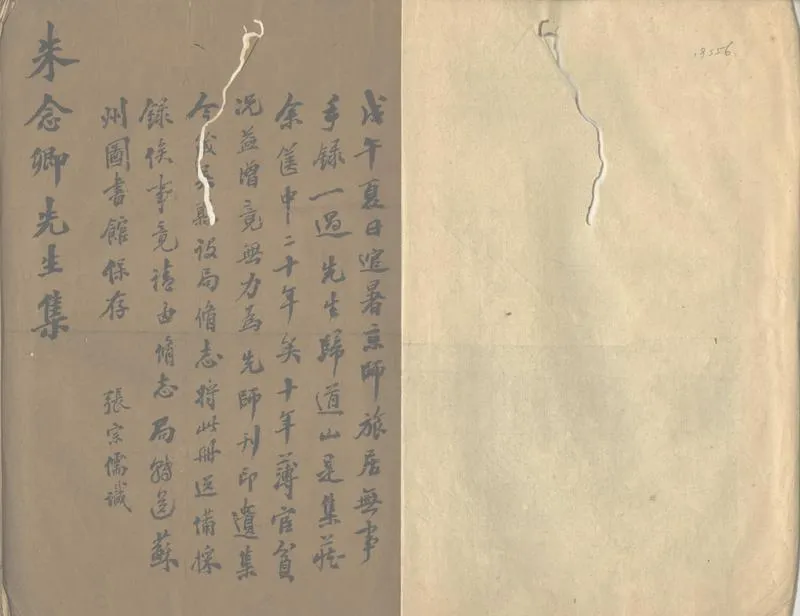 戊午夏日逭暑京師旅居無事
手錄一過先生歸道山是集藏
余篋中二十年矣十年薄宦貧
況益增竟無力為先師刊印遺集
今歲吳縣設局脩志將此冊送備採
錄俟事竟請由脩志局轉送蘇
州圖書館保存
張宗儒識
朱念卿先生集